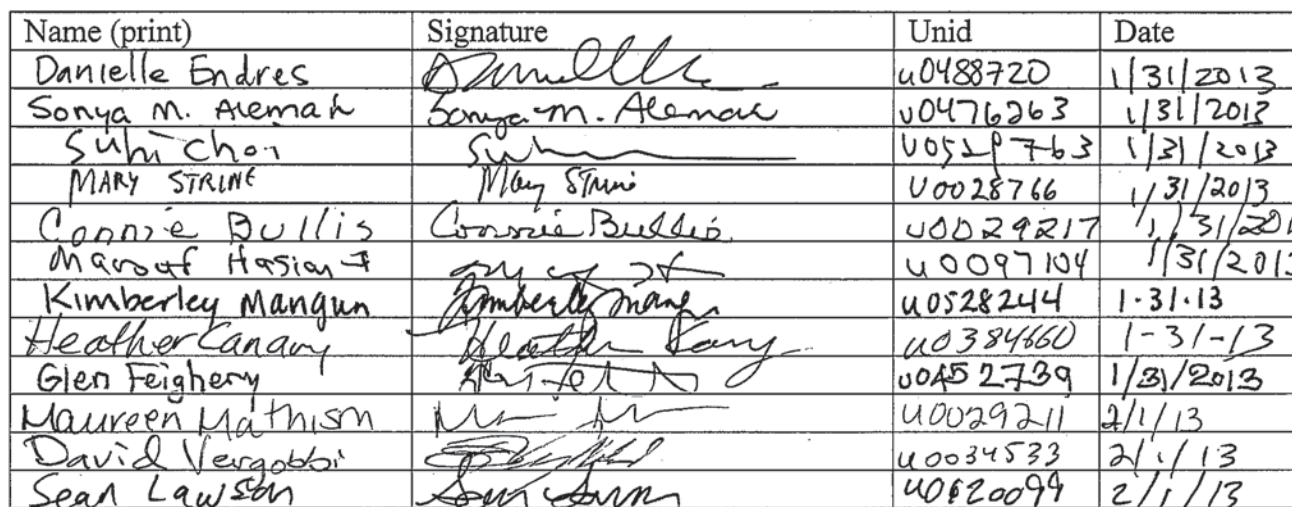 Name (print) Signature Unid Date
Danielle Endres u0488720 1/31/2013
Sonya M. Aleman Sonya M. Aleman u0476263 1/31/2013
Suhi Choi 1/31/2013
MARY STRINE Mary Strine U0028766 1/31/2013
Connie Bullis Connie Bullis u0029217 1/31/201
Marouf Hasian Jr u0097104 1/31/2013
Kimberley Mangun Kimberley Mangun u0528244 1.31.13
Heather Canary Heather Canary u0384660 1-31-13
Glen Feighery u0452739 1/31/2013
Maureen Mathison u0029211 2/1/13
David Vergobbi u0034533 2/1/13
Sean Lawson u0620099 2/1/13